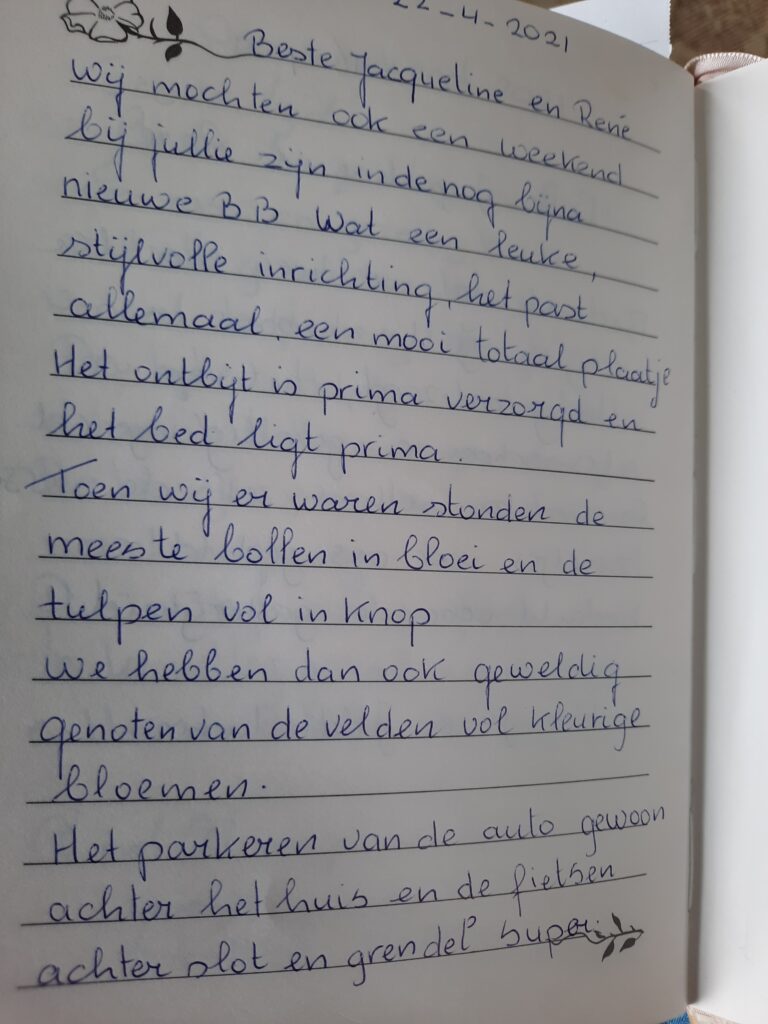 22-4-2021
Beste Jacqueline en René
Wij mochten ook een weekend
bij jullie zijn in de nog bijna
nieuwe BB Wat een leuke,
stijlvolle inrichting, het past
allemaal, een mooi totaal plaatje
Het ontbijt is prima verzorgd en
het bed ligt prima.
Toen wij er waren stonden de
meeste bollen in bloei en de
tulpen vol in knop
We hebben dan ook geweldig
genoten van de velden vol kleurige
bloemen.
Het parkeren van de auto gewoon
achter het huis en de fietsen
achter slot en grendel super.